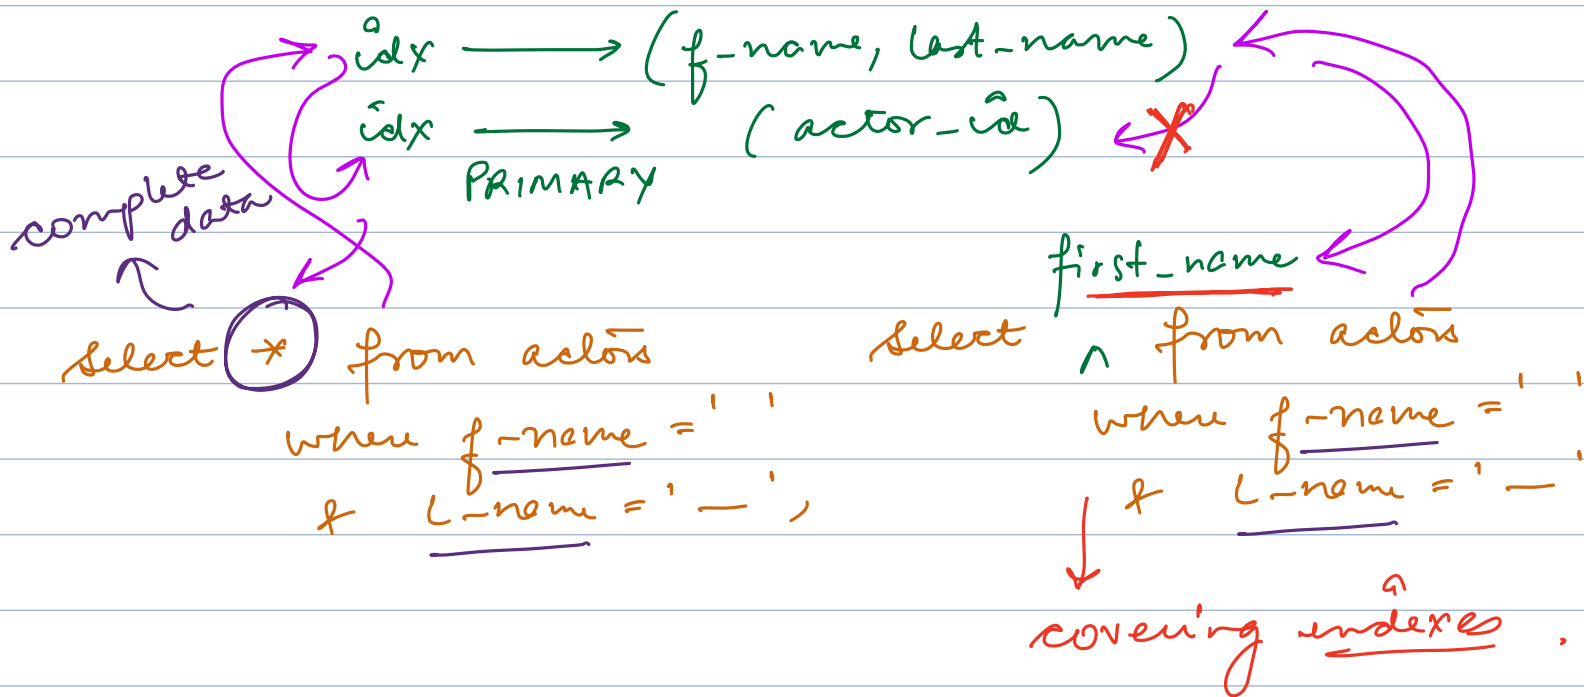 idx → (f-name, last-name)
idx → (actor-id)
PRIMARY
complete
data
first_name
select * from actors
where f-name = ' '
& L-name = ' — ' ,
select ^ from actors
where f-name = ' '
& L-name = ' — '
covering indexes .